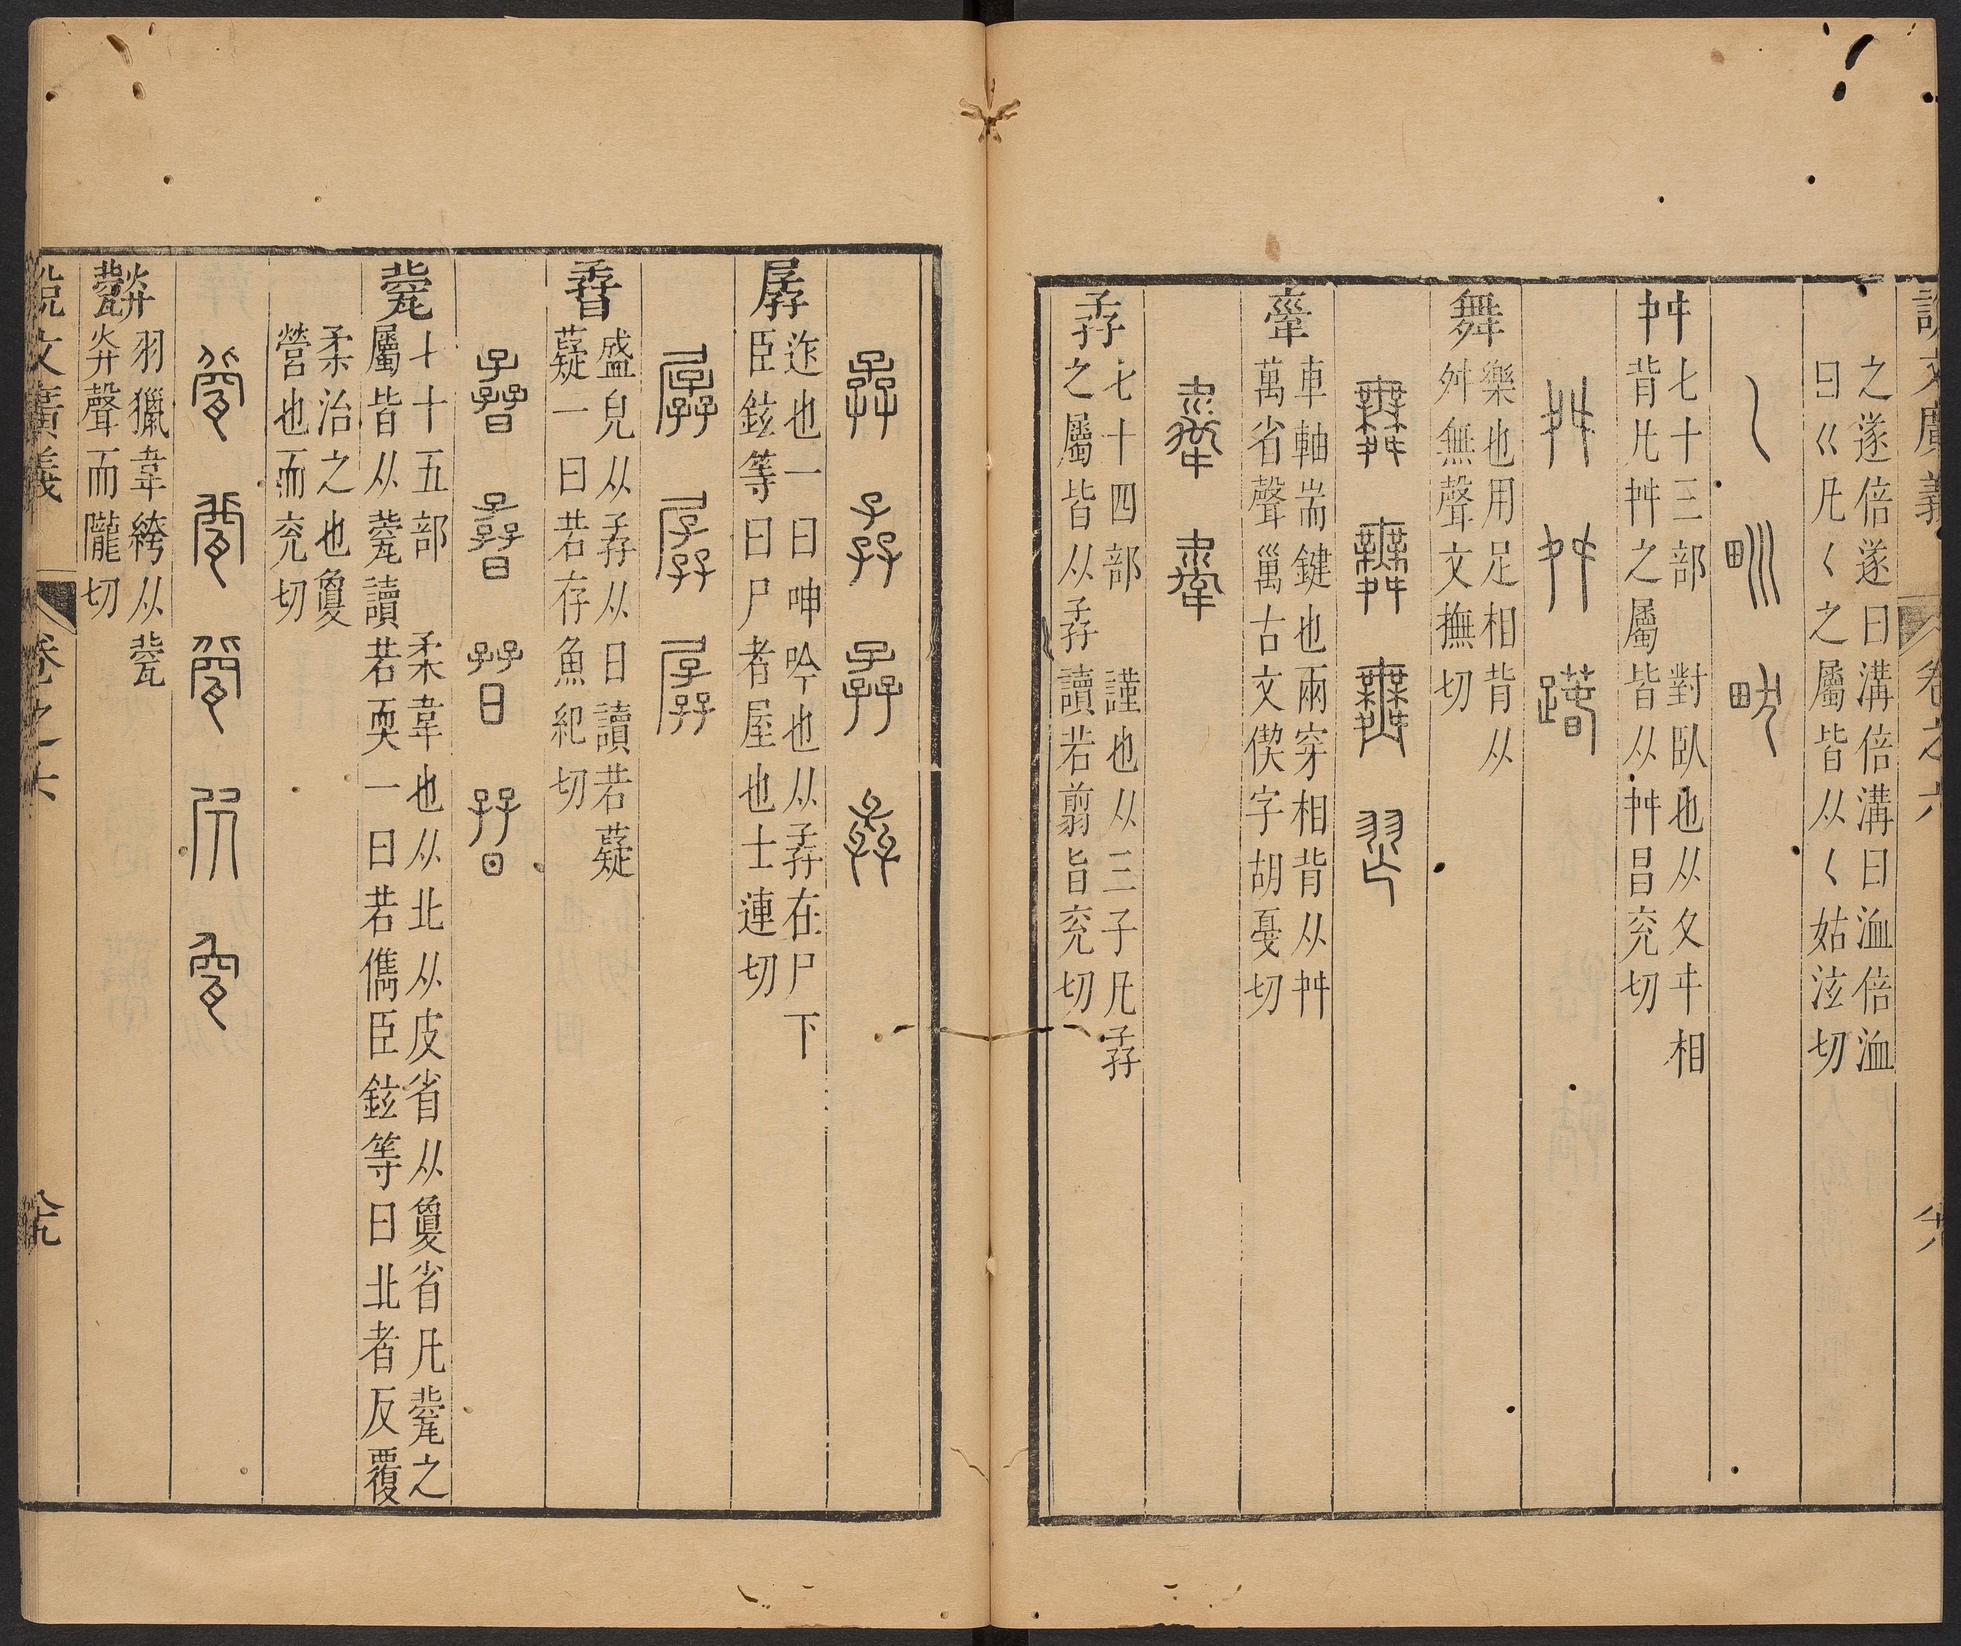 之遂倍遂曰溝倍溝曰洫倍洫
曰巜凡〈之屬皆从〈姑泫切
舛
七十三部 對臥也从夂㐄相
背凡舛之屬皆从舛昌兖切
舞
樂也用足相背从
舛無聲文撫切
舝
車軸耑鍵也兩穿相背从舛
萬省聲䡣古文偰字胡戛切
孨
七十四部 謹也从三子凡孨
之屬皆从孨讀若翦旨兖切
孱
迮也一曰呻吟也从孨在尸下
臣鉉等曰尸者屋也士連切
孴
盛皃从孨从日讀若薿
薿一曰若存魚紀切
㼱
十十五部 柔韋也从北从皮省从敻省凡㼱之
屬皆从㼱讀若耎一曰若儁臣鉉等曰北者反覆
柔治之也敻
營也而兖切
羽獵韋絝从㼱
灷聲而隴切
說文廣義 卷之六